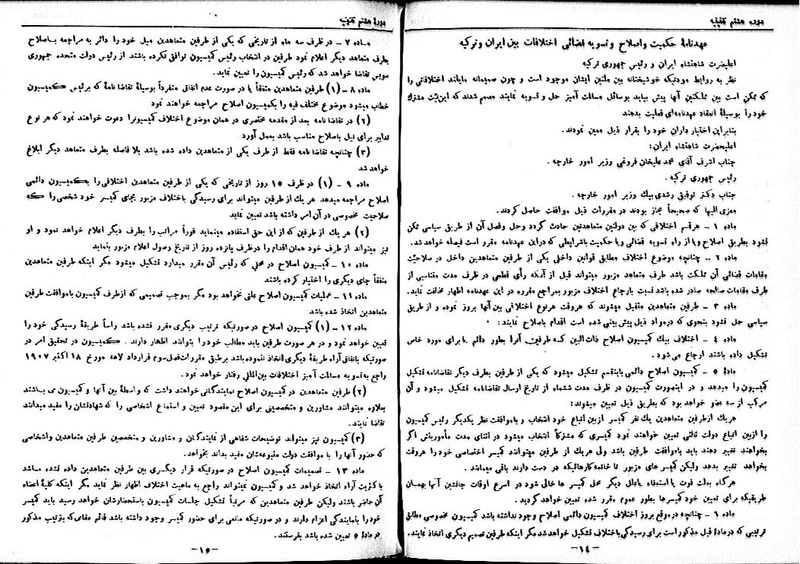 دوره هشتم تقنینیه
عهدنامهٔ حکمیت و اصلاح و تسویه قضائی اختلافات بین ایران و ترکیه
اعلیحضرت شاهنشاه ایران و رئیس جمهوری ترکیه
نظر به روابط مودتیکه خوشبختانه بین ملتین ایشان موجود است و چون صمیمانه مایلند اختلافاتی را
که ممکن است بین مملکتین آنها پیش بیاید بوسائل مسالمت آمیز حل و تسویه نمایند مصمم شدند که این نیت مشترک
خود را بوسیلهٔ انعقاد عهدنامه‌ای فعلیت بدهند
بنابراین اختیار داران خود را بقرار ذیل معین نمودند.
اعلیحضرت شاهنشاه ایران:
جناب اشرف آقای محمد علیخان فروغی وزیر امور خارجه.
رئیس جمهوری ترکیه.
جناب دکتر توفیق رشدی بیك وزیر امور خارجه.
معزی الیها که صحیحاً مجاز بودند در مقررات ذیل موافقت حاصل کردند.
ماده ۱ - هر قسم اختلافی که بین دولتین متعاهدتین حادث گردد و حل و فصل آن از طریق سیاسی ممکن
نشود بطریق اصلاح و یا از راه تسویه قضائی و یا حکمیت باشرایطی که در این عهدنامه مقرر است فیصله خواهد شد.
ماده ۲ - چنانچه موضوع اختلاف مطابق قوانین داخلی یکی از طرفین متعاهدین داخل در صلاحیت
مقامات قضائی آن مملکت باشد طرف متعاهد مزبور میتواند قبل از آنکه رأی قطعی در ظرف مدت مناسبی از
طرف مقامات صالحه صادر شده باشد نسبت بارجاع اختلاف مزبور بمراجع مقرره در این عهدنامه اظهار مخالفت نماید.
ماده ۳ - طرفین متعاهدین متقبل میشوند که هر وقت هر نوع اختلافی بین آنها بروز نموده و از طریق
سیاسی حل نشود بنحوی که در مواد ذیل پیش بینی شده است اقدام باصلاح نمایند:
ماده ٤ - اختلاف بیك کمیسیون اصلاح ذات البین که طرفین آنرا بطور دائم یا برای مورد خاص
تشکیل داده باشند ارجاع می شود.
ماده ٥ - کمیسیون اصلاح دائمی باینقسم تشکیل میشود که یکی از طرفین بطرف دیگر تقاضانامه تشکیل
کمیسیون را میدهد و در اینصورت کمیسیون در ظرف مدت ششماه از تاریخ ارسال تقاضانامه تشکیل میشود و آن
مرکب از سه عضو خواهد بود که بطریق ذیل تعیین میشوند:
هر یك از طرفین متعاهدین یك نفر کمیسر از بین اتباع خود انتخاب و باموافقت نظر یکدیگر رئیس کمیسیون
را از بین اتباع دولت ثالثی تعیین خواهند نمود کمیسری که مشترکاً انتخاب میشود در اثنای مدت مأموریتش اگر
بخواهند تغییر دهند باید باموافقت طرفین باشد ولی هر یك از طرفین میتوانند کمیسر اختصاصی خود را هر وقت
بخواهند تغییر بدهد ولیکن کمیسر های مزبور تا خاتمه کارهائیکه در دست دارند باقی میمانند.
هرگاه بعلت فوت یا استعفاء یا بعلل دیگر محل کمیسر ها خالی شود در اسرع اوقات جانشین آنها بهمان
طریقیکه برای تعیین خود کمیسرها بطور عموم مقرر شده تعیین خواهد گردید.
ماده ٦ - چنانچه در موقع بروز اختلاف کمیسیون دائمی اصلاح وجود نداشته باشد کمیسیون مخصوصی مطابق
ترتیبی که در مادهٔ قبل مذکور است برای رسیدگی باختلاف تشکیل خواهد شد مگر اینکه طرفین تصمیم دیگری اتخاذ نمایند.
-۱٤-
دورهٔ هشتم تقنینیه
ماده ۷ - در ظرف سه ماه از تاریخی که یکی از طرفین متعاهدین میل خود را دائر به مراجعه باصلاح
بطرف متعاهد دیگر اعلام نمود طرفین در انتخاب رئیس کمیسیون توافق نکرده باشند از رئیس دولت متحده جمهوری
سویس تقاضا خواهد شد که رئیس کمیسیون را تعیین نماید.
ماده ۸ - (۱) طرفین متعاهدین متفقاً یا در صورت عدم اتفاق منفرداً بوسیلهٔ تقاضا نامهٔ که برئیس کمیسیون
خطاب میشود موضوع مختلف فیه را بکمیسیون اصلاح مراجعه خواهند نمود
(۲) در تقاضا نامه بعد از مقدمه مختصری در همان موضوع اختلاف کمیسیونرا دعوت خواهند نمود که هر نوع
تدابیر برای نیل باصلاح مناسب باشد بعمل آورد
(۳) چنانچه تقاضا نامه فقط از طرف یکی از متعاهدین داده شده باشد بلا فاصله بطرف متعاهد دیگر ابلاغ
خواهد شد
ماده ۹ - (۱) در ظرف ۱٥ روز از تاریخی که یکی از طرفین متعاهدین اختلافی را بکمیسیون دائمی
اصلاح مراجعه میدهد هر یك از طرفین میتواند برای رسیدگی باختلاف مزبور بجای کمیسر خود شخصی را که
صلاحیت مخصوصی در آن امر داشته باشد تعیین نماید
(۲) هر یك از طرفین که از این حق استفاده مینماید فوراً مراتب را بطرف دیگر اعلام خواهد نمود و او
نیز میتواند از طرف خود همان اقدام را در ظرف پانزده روز از تاریخ وصول اعلام مزبور بنماید
ماده ۱۰ - کمیسیون اصلاح در محلی که رئیس آن مقرر میدارد تشکیل میشود مگر اینکه طرفین متعاهدین
متفقاً جای دیگری را اختیار کرده باشند
ماده ۱۱ - عملیات کمیسیون اصلاح علنی نخواهد بود مگر بموجب تصمیمی که از طرف کمیسیون باموافقت طرفین
متعاهدین اتخاذ شده باشد
ماده ۱۲ - (۱) کمیسیون اصلاح در صورتیکه ترتیب دیگری مقرر نشده باشد راساً طریقهٔ رسیدگی خود را
تعیین خواهد نمود و در هر صورت طرفین باید مطالب خود را بتوانند اظهار دارند. کمیسیون در تحقیق امر در
صورتیکه باتفاق آراء طریقهٔ دیگری اتخاذ ننموده باشد برطبق مقررات فصل سوم قرارداد لاهه مورخ ۱۸ اکتبر ۱۹۰۷
راجع به تسویه مسالمت آمیز اختلافات بین المللی رفتار خواهد نمود.
(۲) طرفین متعاهدین در کمیسیون اصلاح نمایندگانی خواهند داشت که واسطهٔ بین آنها و کمیسیون می باشند
بعلاوه میتوانند مشاورین و متخصصینی برای این مقصود تعیین و استماع اشخاصی را که شهادتشان را مفید میدانند
تقاضا نمایند.
(۳) کمیسیون نیز میتواند توضیحات شفاهی از نمایندگان و مشاورین و متخصصین طرفین متعاهدین و اشخاصی
که حضور آنها را با موافقت دولت متبوعه‌شان مفید بداند بخواهد.
ماده ۱۳ - تصمیمات کمیسیون اصلاح در صورتیکه قرار دیگری بین طرفین متعاهدین داده نشده باشد
با کثریت آراء اتخاذ خواهد شد و کمیسیون نمیتواند راجع به ماهیت اختلاف اظهار نظر نماید مگر اینکه کلیهٔ اعضاء
آن حاضر باشند ولیکن طرفین متعاهدین که مرتباً تشکیل جلسات کمیسیون باستحضارشان خواهد رسید باید کمیسر
خود را یا نمایندگی اعزام دارند و در صورتیکه مانعی برای حضور کمیسر وجود داشته باشد قائم مقامی که بترتیب مذکور
در مادهٔ ٥ تعیین شده باشد بفرستند.
-۱٥-